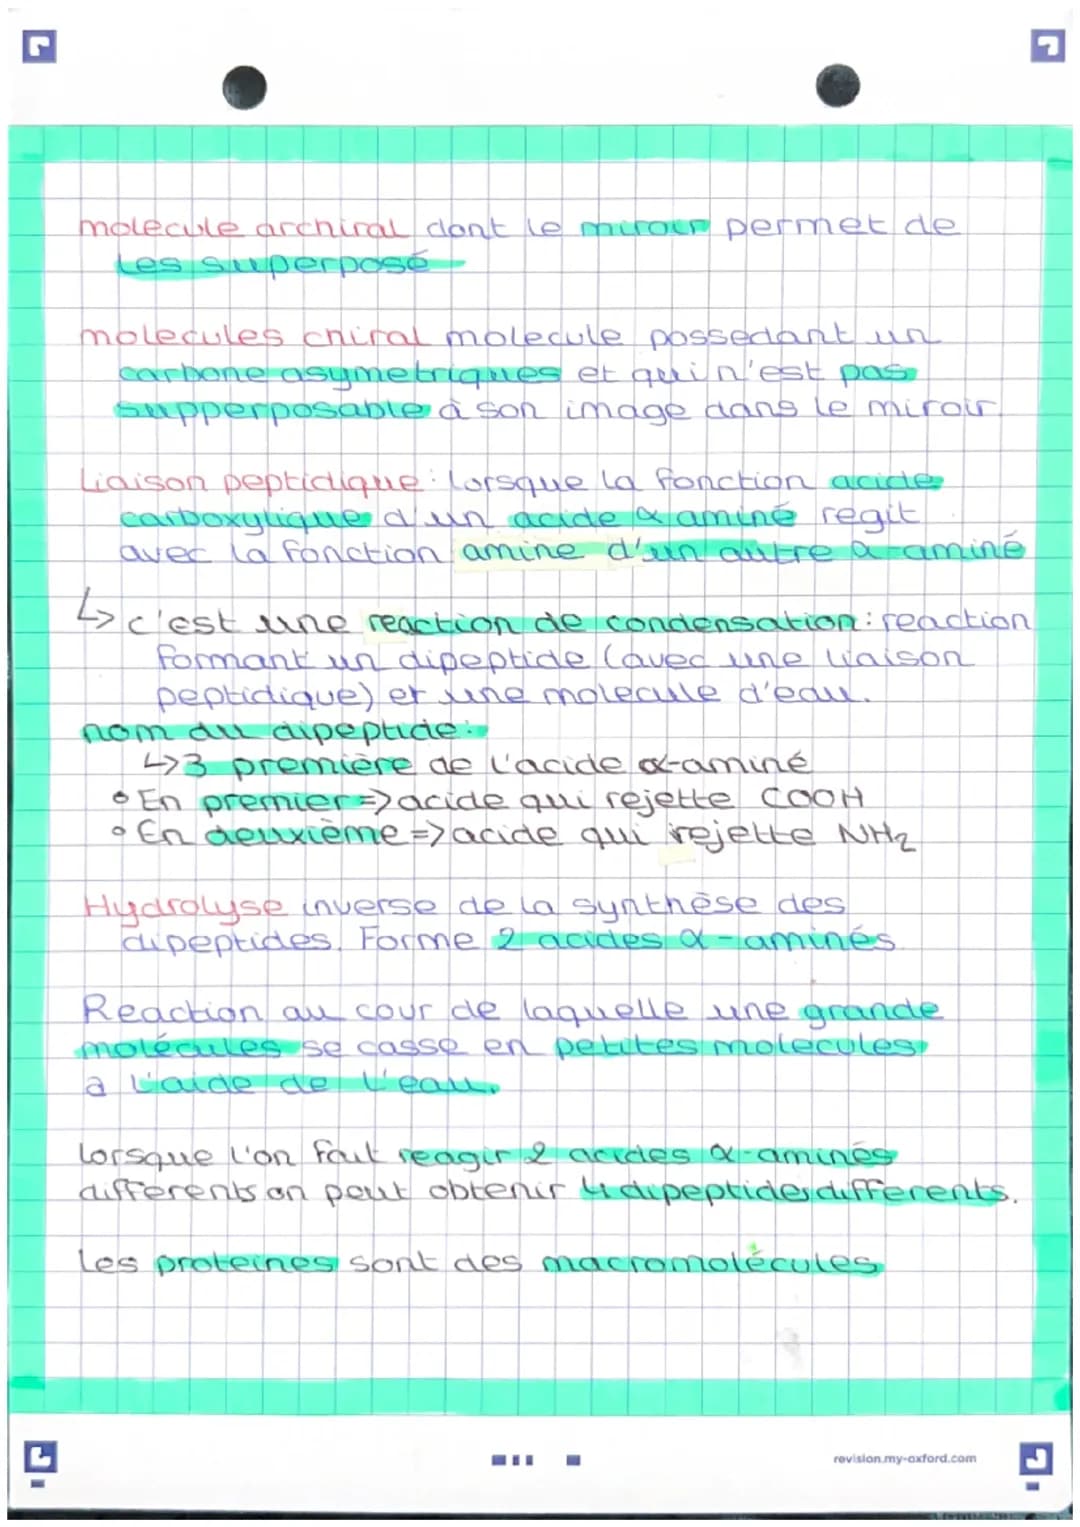 molecule archiral dont le miroir permet de
les superposé
molecules chiral molecule possedant un
carbone asymetriques et qui n'est pas
supperposable à son image dans le miroir.
Liaison peptidique: lorsque la fonction acide
carboxylique d'un acide α aminé regit
avec la fonction amine d'un autre α-aminé
↳ c'est une reaction de condensation: reaction
formant un dipeptide (avec une liaison
peptidique) et une molecule d'eau.
nom du dipeptide:
↳ 3 première de l'acide α-aminé
• En premier => acide qui rejette COOH
• En deuxième => acide qui rejette NH2
Hydrolyse inverse de la synthèse des
dipeptides. Forme 2 acides α-aminés.
Reaction au cour de laquelle une grande
molécules se casse en petites molecules
a l'aide de l'eau.
lorsque l'on fait reagir 2 acides α-aminés
differents on peut obtenir 4 dipeptides differents.
Les proteines sont des macromolécules
revision.my-oxford.com